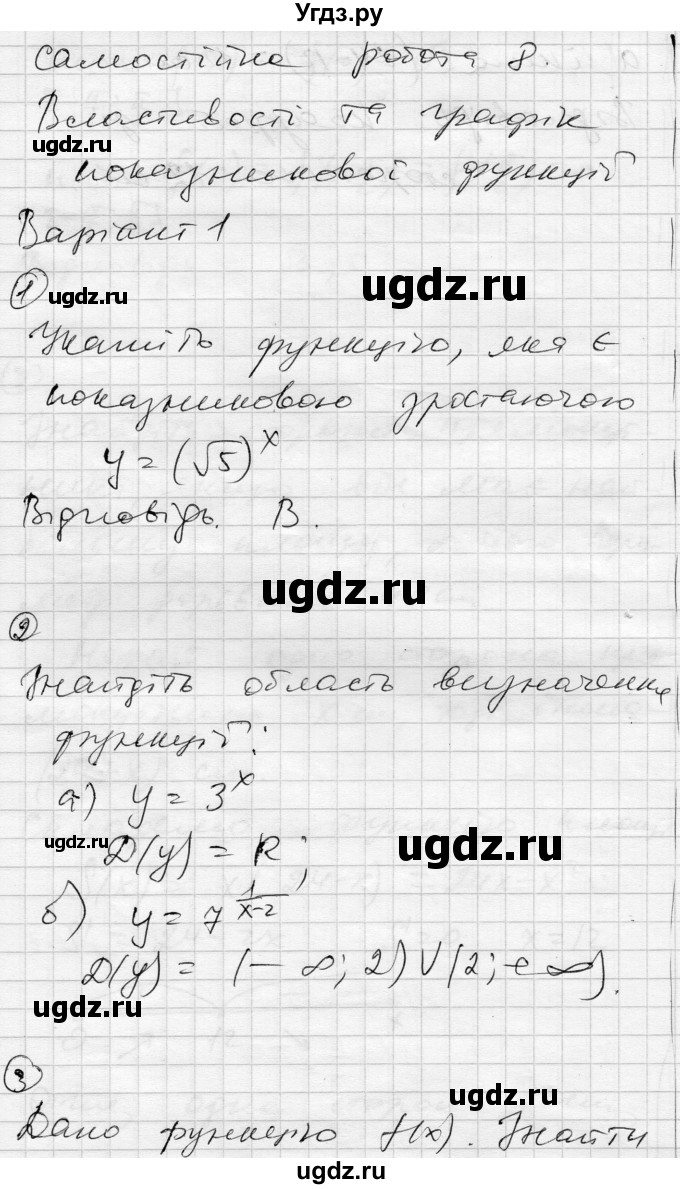 Угдз.ру
самостійна робота 8.
Властивості та графік
ugdz.ru
показникової функції
Варіант 1
1 ugdz.ru ugdz.ru
Укажіть функцію, яка є
показниковою зростаючою
y = (√5)^x
Відповідь. В.
ugdz.ru
2
Знайдіть область визначення
функції:
а) y = 3^x
ugdz.ru ugdz.ru
D(y) = R;
б) y = 7^(1/(x-2))
D(y) = (-∞; 2) ∪ (2; +∞).
ugdz.ru
3 ugdz.ru
Дано функцію f(x). Знайти
ugdz.ru